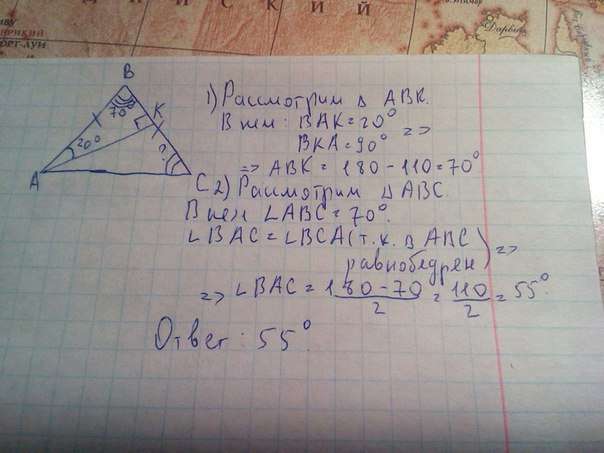 ИЙСКИЙ
Дарвин
B
70°
K
20°
?
A
C
1) Рассмотрим Δ ABK.
В нем: BAK = 20°
BKA = 90° =>
=> ABK = 180 - 110 = 70°
2) Рассмотрим Δ ABC.
В нем ∠ABC = 70°.
∠BAC = ∠BCA (т.к. Δ ABC
равнобедрен) =>
=> ∠BAC = 180 - 70 / 2 = 110 / 2 = 55°
Ответ: 55°.